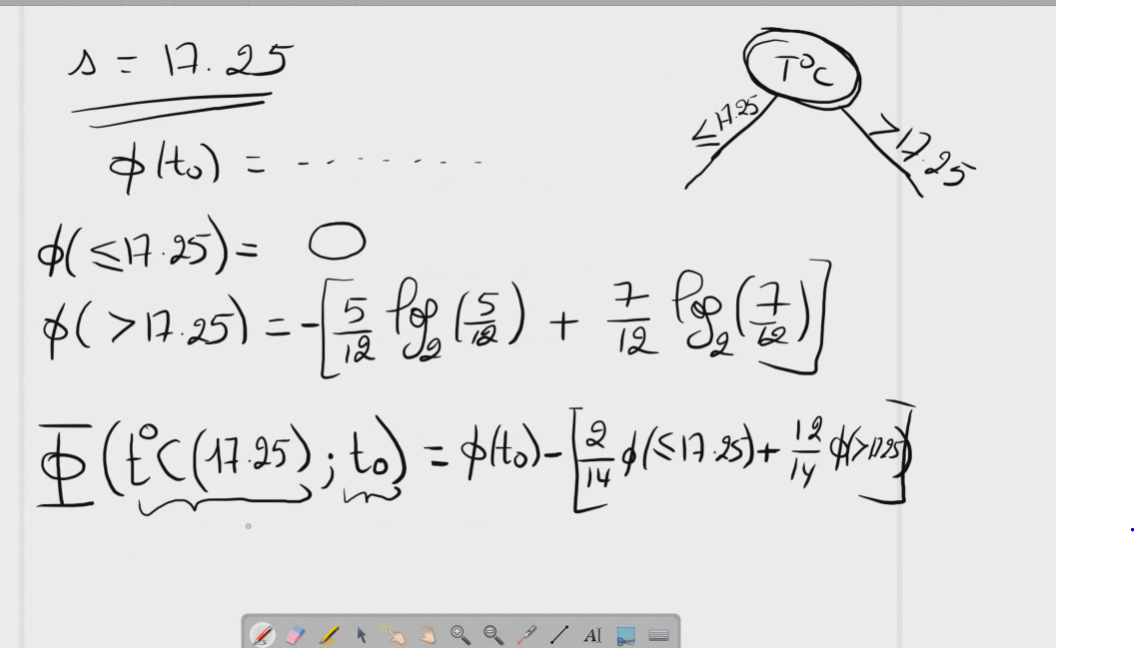 s = 17.25
T°C
≤17.25
>17.25
ϕ(t₀) = - - - - - - -
ϕ(≤17.25) = 0
ϕ(>17.25) = -[5/12 log₂(5/12) + 7/12 log₂(7/12)]
Φ(t°C(17.25); t₀) = ϕ(t₀) - [2/14 ϕ(≤17.25) + 12/14 ϕ(>17.25)]
AI